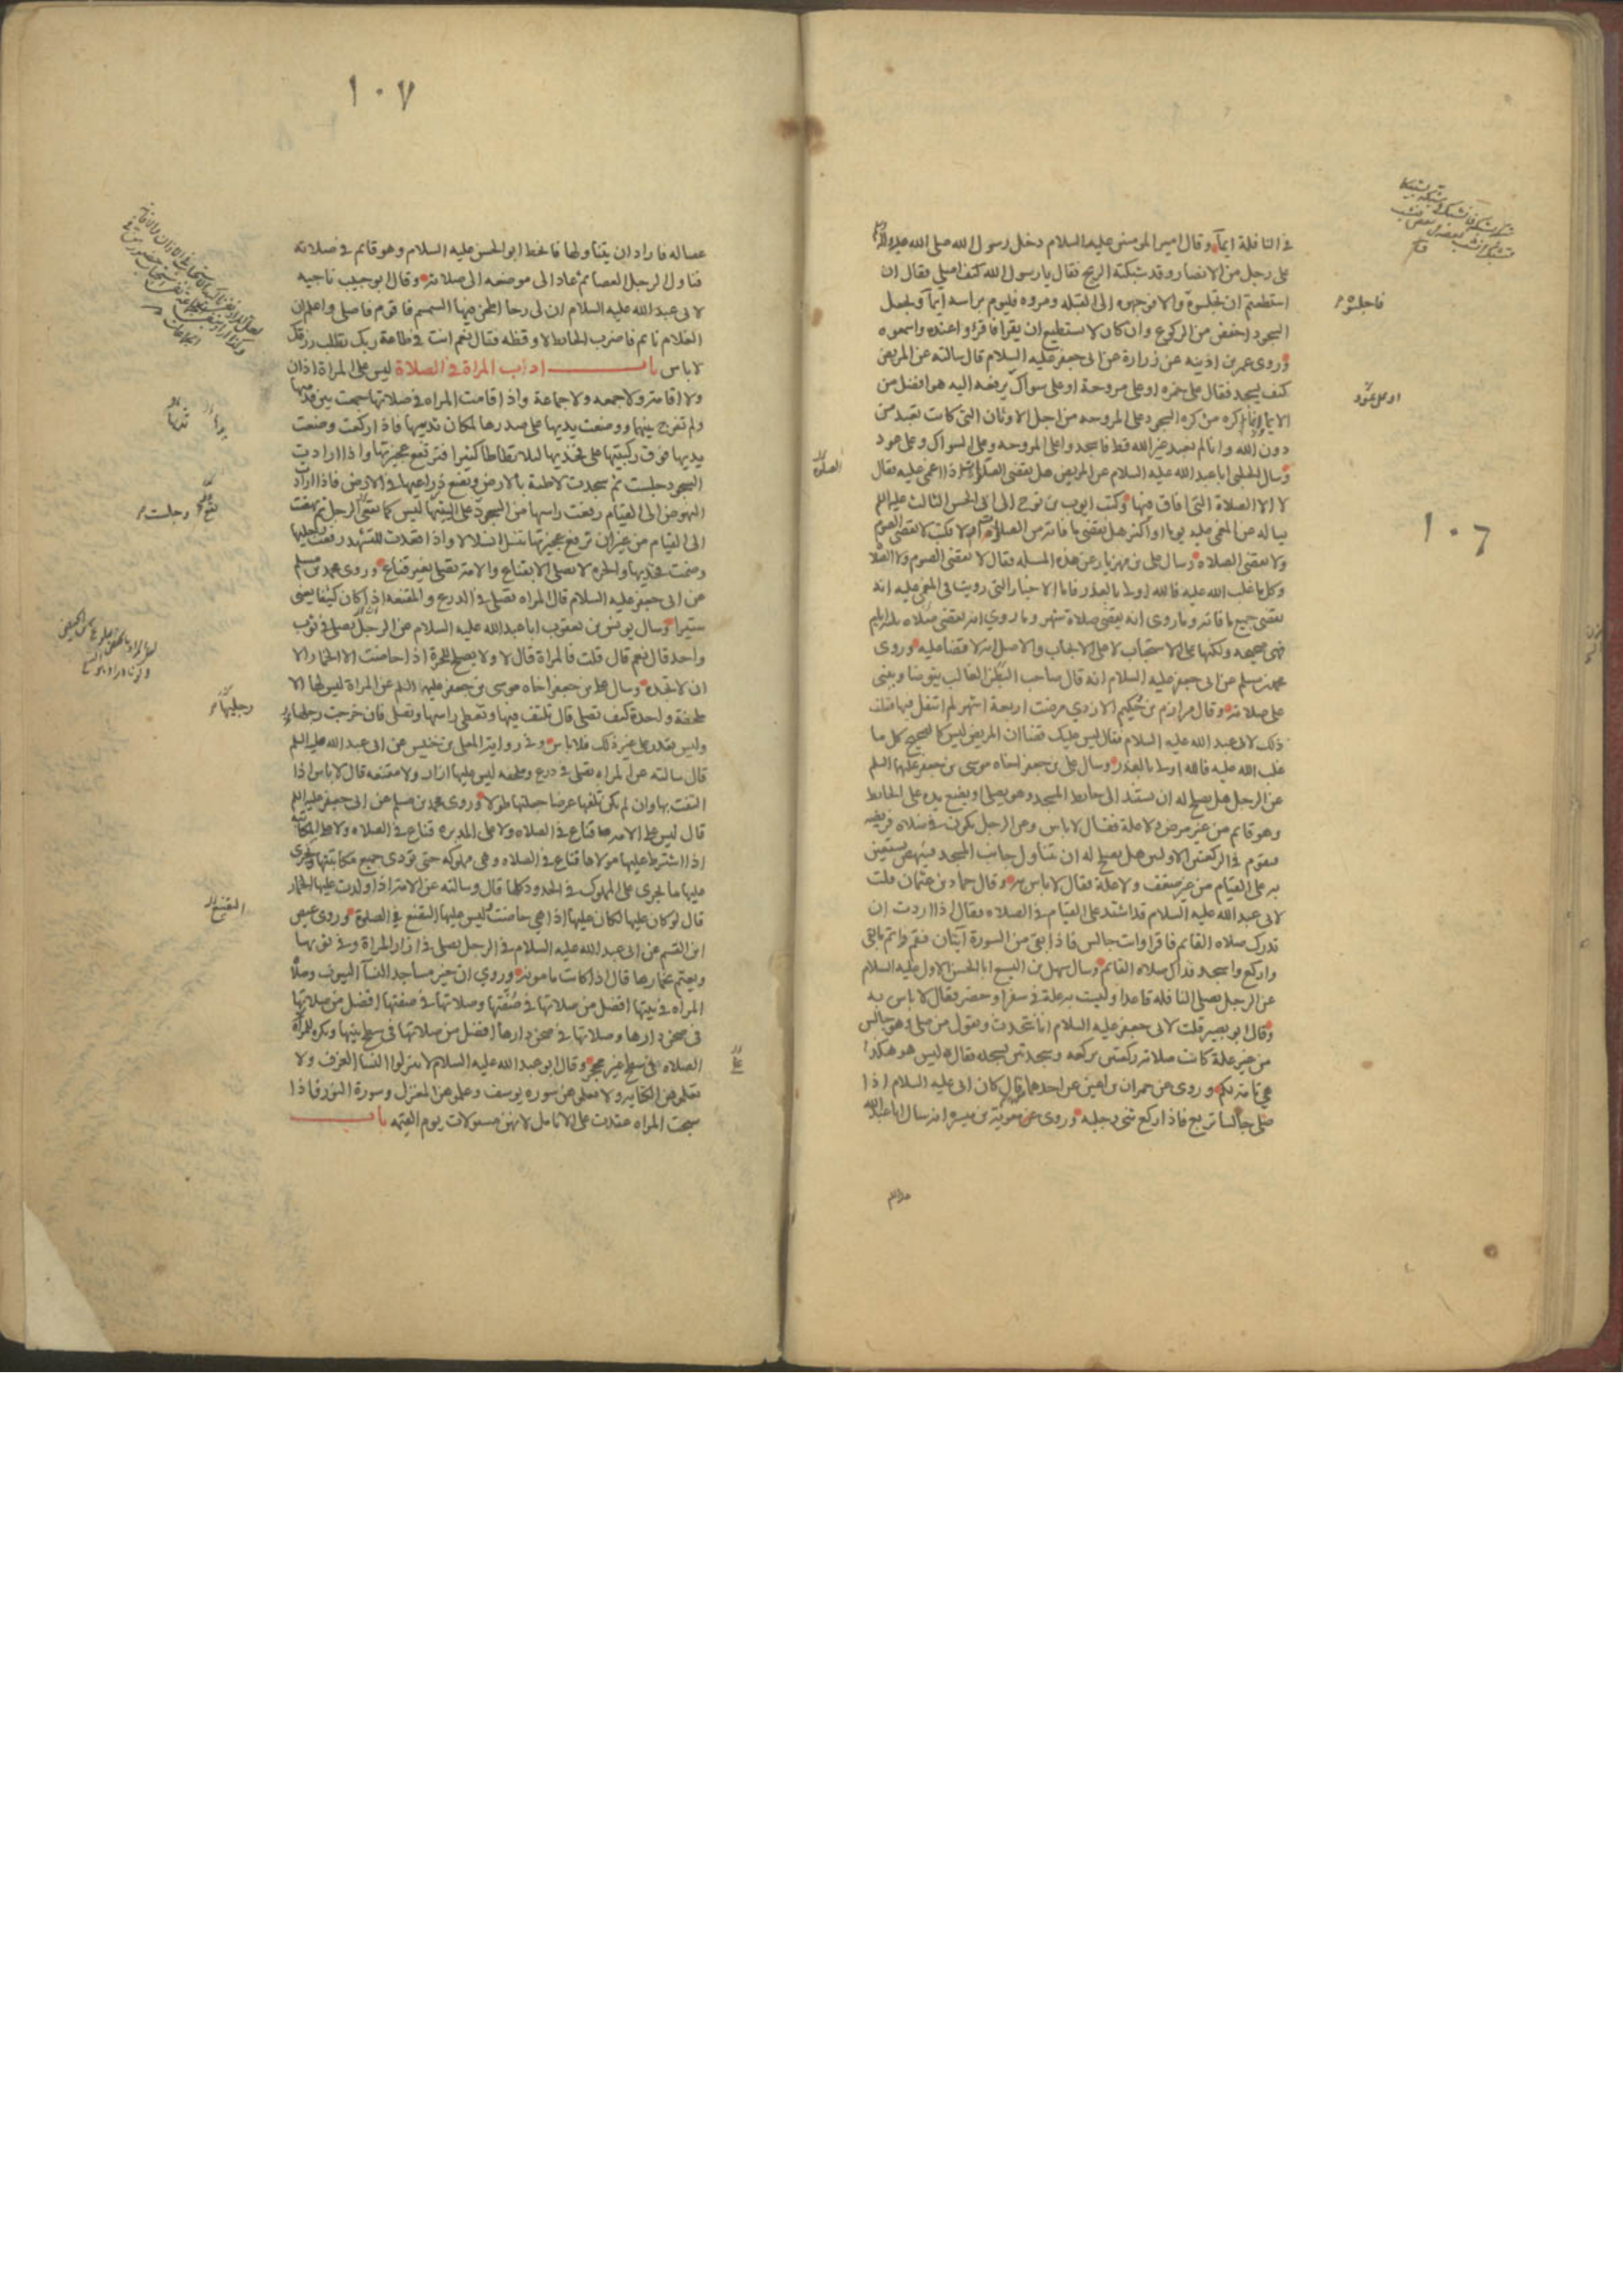 ١٠٦
في النافلة ايماً وقال امير المومنين عليه السلام دخل رسول الله صلى الله عليه واله
على رجل من الانصار وقد شبكته الريح فقال يا رسول الله كيف اصلي فقال ان
استطعتم ان تجلسوه والا فوجهوه الى القبلة ومروه فليوم براسه ايماً ويجعل
السجود اخفض من الركوع وان كان لا يستطيع ان يقرا فاقرؤا عنده واسمعوه
وروى عمر بن اذينه عن زرارة عن ابي جعفر عليه السلام قال سالته عن المريض
كيف يسجد فقال على خمره او على مروحة او على سواك يرفعه اليه هو افضل من
الايما انما كره من كره السجود على المروحه من اجل الاوثان التي كانت تعبد من
دون الله وانا لم نعبد غير الله قط فاسجد وا على المروحه وعلى السواك وعلى عود
وسال الحلبي ابا عبد الله عليه السلام عن المريض هل يقضي الصلاة اذا اغمي عليه فقال
لا الا الصلاة التي افاق فيها وكتب ايوب بن نوح الى ابي الحسن الثالث عليه السلم
يساله عن المغمى عليه يوما او اكثر هل يقضي ما فاته من الصلاة ام لا فكتب لا يقضي الصوم
ولا يقضي الصلاه وسال علي بن مهزيار عن هذه المسله فقال لا يقضي الصوم ولا الصلا
وكل ما غلب الله عليه فالله اولى بالعذر فاما الاخبار التي رويت في المغمى عليه انه
يقضي جميع ما فاته وما روى انه يقضي صلاة شهر وما روي انه يقضي صلاه ثلثه ايام
فهي صحيحه ولكنها على الاستحباب لا على الايجاب والاصل انه لا قضا عليه وروى
محمد بن مسلم عن ابي جعفر عليه السلام انه قال صاحب البطن الغالب يتوضا ويبني
على صلاته وقال مرازم بن حكيم الازدي مرضت اربعة اشهر لم اتنفل فيها فقلت
ذلك لابي عبد الله عليه السلام فقال ليس عليك قضا ان المريض ليس كالصحيح كل ما
غلب الله عليه فالله اولى بالعذر وسال علي بن جعفر اخاه موسى بن جعفر عليهما السلم
عن الرجل هل يصلح له ان يستند الى حايط المسجد وهو يصلي او يضع يده على الحايط
وهو قايم من غير مرض ولا علة فقال لا باس وعن الرجل يكون في صلاه فريضه
فيقوم في الركعتين الاوليين هل يصلح له ان يتناول جانب المسجد فينهض يستعين
به على القيام من غير ضعف ولا علة فقال لا باس به وقال حماد بن عثمان قلت
لابي عبد الله عليه السلام قد اشتد علي القيام في الصلاه فقال اذا اردت ان
تدرك صلاه القايم فاقرا وانت جالس فاذا بقي من السورة آيتان فقم واتم ما بقي
واركع واسجد فذاك صلاه القايم وسال سهل بن اليسع ابا الحسن الاول عليه السلام
عن الرجل يصلي النافلة قاعدا وليست به علة في سفر او حضر فقال لا باس به
وقال ابو بصير قلت لابي جعفر عليه السلام انا نتحدث ونقول من صلى وهو جالس
من غير علة كانت صلاته ركعتين بركعه وسجدتين بسجده فقال ليس هو هكذا
هي تامه لكم وروى عن حمران بن اعين عن احدهما قال كان ابي عليه السلام اذا
صلى جالسا تربع فاذا ركع ثنى رجليه وروى عن معوية بن ميسره انه سال ابا عبد الله
فاجلسوه
او على عود
الصلوة
١٠٧
عصاله فاراد ان يتناولها فانحط ابو الحسن عليه السلام وهو قايم في صلاته
فناول الرجل العصا ثم عاد الى موضعه الى صلاته وقال ابو حبيب ناجيه
لابي عبد الله عليه السلام ان لي رحا اطحن فيها السمسم فاقوم فاصلي واعلم ان
الغلام نايم فاضرب الحايط لاوقظه فقال نعم انت في طاعة ربك تطلب رزقك
لا باس باب اداب المراة في الصلاة ليس على المراة اذان
ولا اقامة ولا جمعه ولا جماعة واذا قامت المراه في صلاتها جمعت بين قدميها
ولم تفرج بينهما ووضعت يديها على صدرها لمكان ثدييها فاذا ركعت وضعت
يديها فوق ركبتيها على فخذيها لئلا تطاطا كثيرا فترتفع عجيزتها واذا ارادت
السجود جلست ثم سجدت لاطئة بالارض وتضع ذراعيها في الارض فاذا ارادت
النهوض الى القيام رفعت راسها من السجود على اليتيها ليس كما يقعي الرجل ثم نهضت
الى القيام من غير ان ترفع عجيزتها تنسل انسلالا واذا قعدت للتشهد رفعت رجليها
وضمت فخذيها والحره لا تصلي الا بقناع والامة تصلي بغير قناع وروى محمد بن مسلم
عن ابي جعفر عليه السلام قال المراه تصلي في الدرع والمقنعه اذا كان كثيفا يعني
ستيرا وسال يونس بن يعقوب ابا عبد الله عليه السلام عن الرجل يصلي في ثوب
واحد قال نعم قال قلت فالمراة قال لا ولا يصلح للحرة اذا حاضت الا الخمار الا
ان لا تجده وسال علي بن جعفر اخاه موسى بن جعفر عليهما السلم عن المراة ليس لها الا
ملحفة واحدة كيف تصلي قال تلتف فيها وتغطي راسها وتصلي فان خرجت رجلها
وليس تقدر على غير ذلك فلا باس وفي رواية المعلى بن خنيس عن ابي عبد الله عليه السلم
قال سالته عن المراه تصلي في درع وملحفه ليس عليها ازار ولا مقنعه قال لا باس اذا
التفت بها وان لم تكن تلفها عرضا جعلتها طولا وروى محمد بن مسلم عن ابي جعفر عليه السلم
قال ليس على الامه قناع في الصلاه ولا على المدبره قناع في الصلاه ولا على المكاتبة
اذا اشترط عليها مولاها قناع في الصلاه وهي مملوكه حتى تودي جميع مكاتبتها ويجري
عليها ما يجري على المملوك في الحدود كلها قال وسالته عن الامة اذا ولدت عليها الخمار
قال لو كان عليها لكان عليها اذا هي حاضت وليس عليها التقنع في الصلوة وروى عيص
ابن القسم عن ابي عبد الله عليه السلام في الرجل يصلي في ازار المراة وفي ثوبها
ويعتم بخمارها قال اذا كانت مامونه وروي ان خير مساجد النسآ البيوت وصلاة
المراه في بيتها افضل من صلاتها في صفتها وصلاتها في صفتها افضل من صلاتها
في صحن دارها وصلاتها في صحن دارها افضل من صلاتها في سطح بيتها وتكره للمرأة
الصلاه في سطح غير محجر وقال ابو عبد الله عليه السلام لا تنزلوا النسا الغرف ولا
تعلموهن الكتابه ولا تعلموهن سوره يوسف وعلموهن المغزل وسورة النور فاذا
سبحت المراه عقدت على الانامل لانهن مسولات يوم القيمه باب
وجلست
رجليها
التقنع